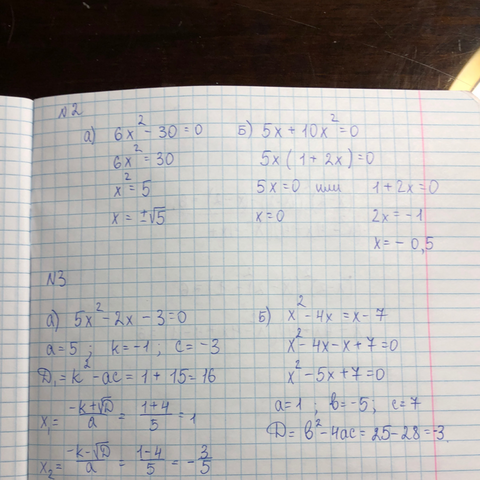 N2
а) 6x² - 30 = 0
6x² = 30
x² = 5
x = ±√5
Б) 5x + 10x² = 0
5x (1 + 2x) = 0
5x = 0 или 1 + 2x = 0
x = 0 2x = -1
x = - 0,5
N3
а) 5x² - 2x - 3 = 0
a = 5 ; k = -1 ; c = -3
D₁ = k² - ac = 1 + 15 = 16
x₁ = (-k + √D)/a = (1+4)/5 = 1
x₂ = (-k - √D)/a = (1-4)/5 = - 3/5
Б) x² - 4x = x - 7
x² - 4x - x + 7 = 0
x² - 5x + 7 = 0
a = 1 ; b = -5 ; c = 7
D = b² - 4ac = 25 - 28 = -3